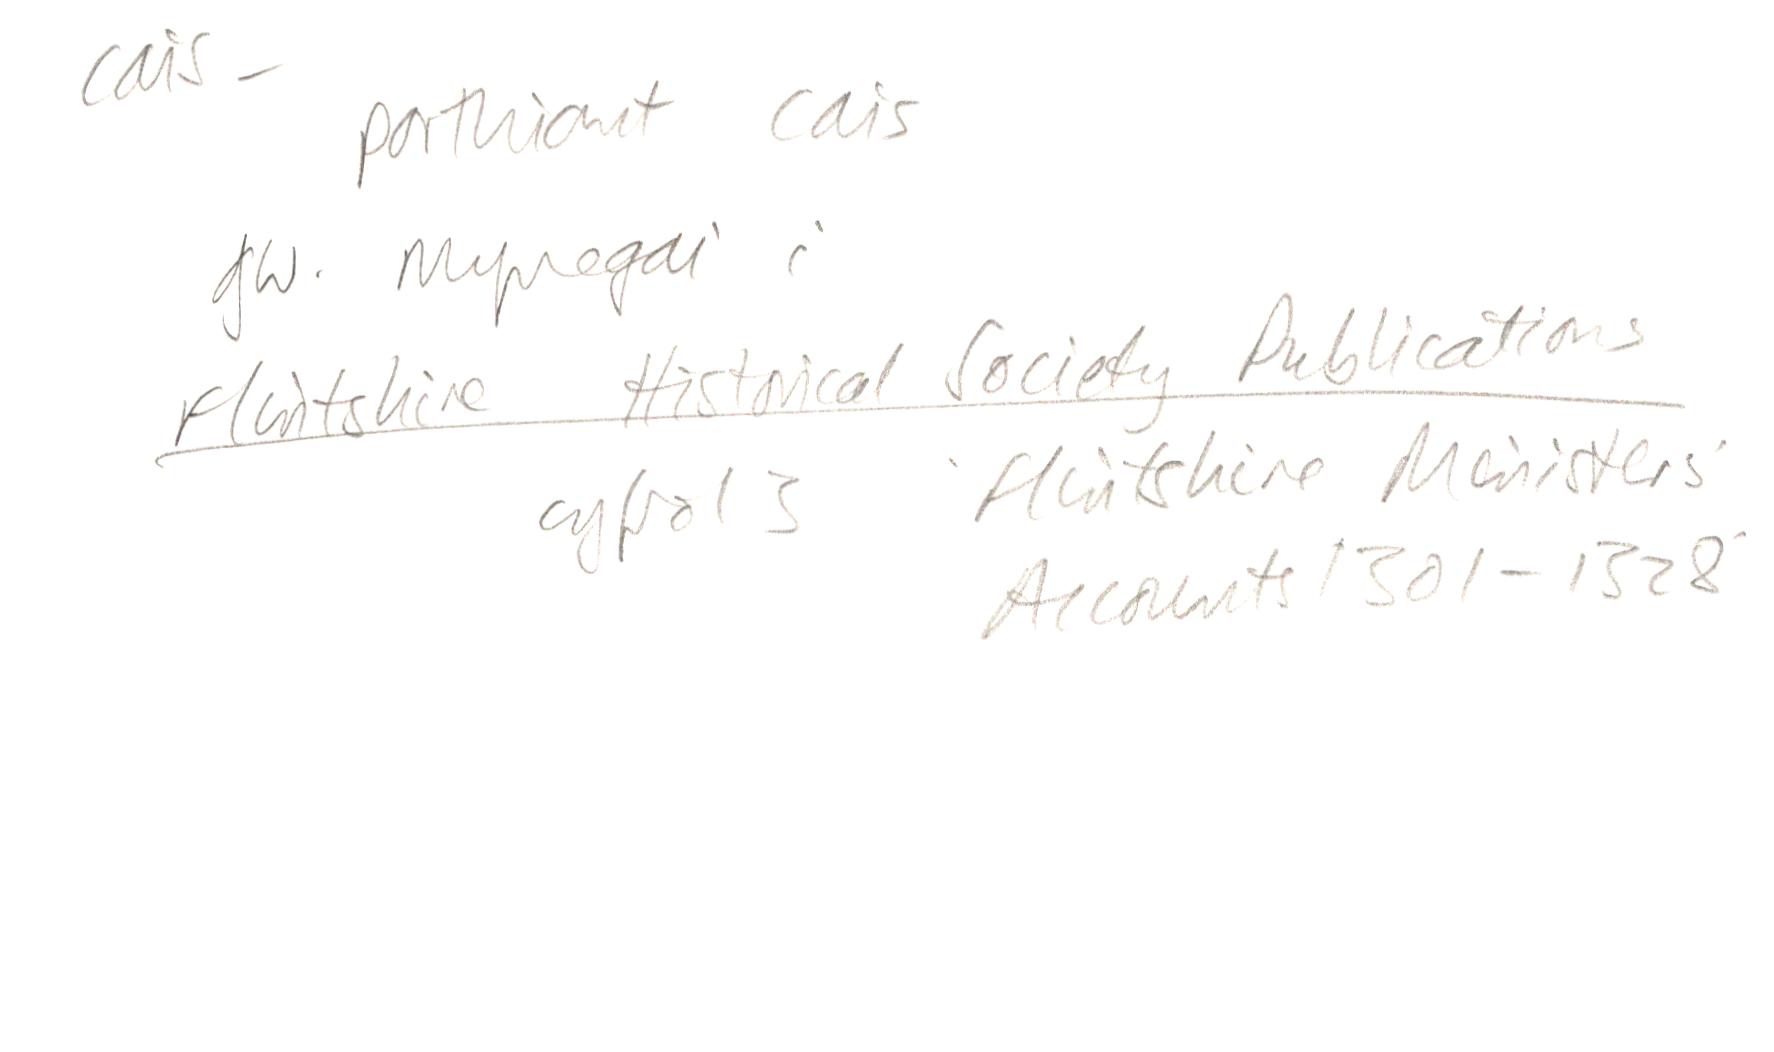 cais -
porthiant cais
gw. Mynegai i
Flintshire Historical Society Publications
cyfrol 3 'Flintshire Ministers'
Accounts 1301-1328'